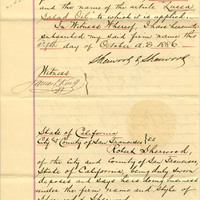 and the name of the article Lucca
Salad Oil to which it is applied.
In Witness Whereof, I have hereunto
subscribed my said firm name this
Fifth day of October A.D. 1886.
Sherwood & Sherwood
Witness
State of California
City & County of San Francisco } ss
Robert Sherwood,
of the City and County of San Francisco
State of California, being duly sworn
deposes and says he is doing business
under the firm name and Style of
Sherwood & Sherwood